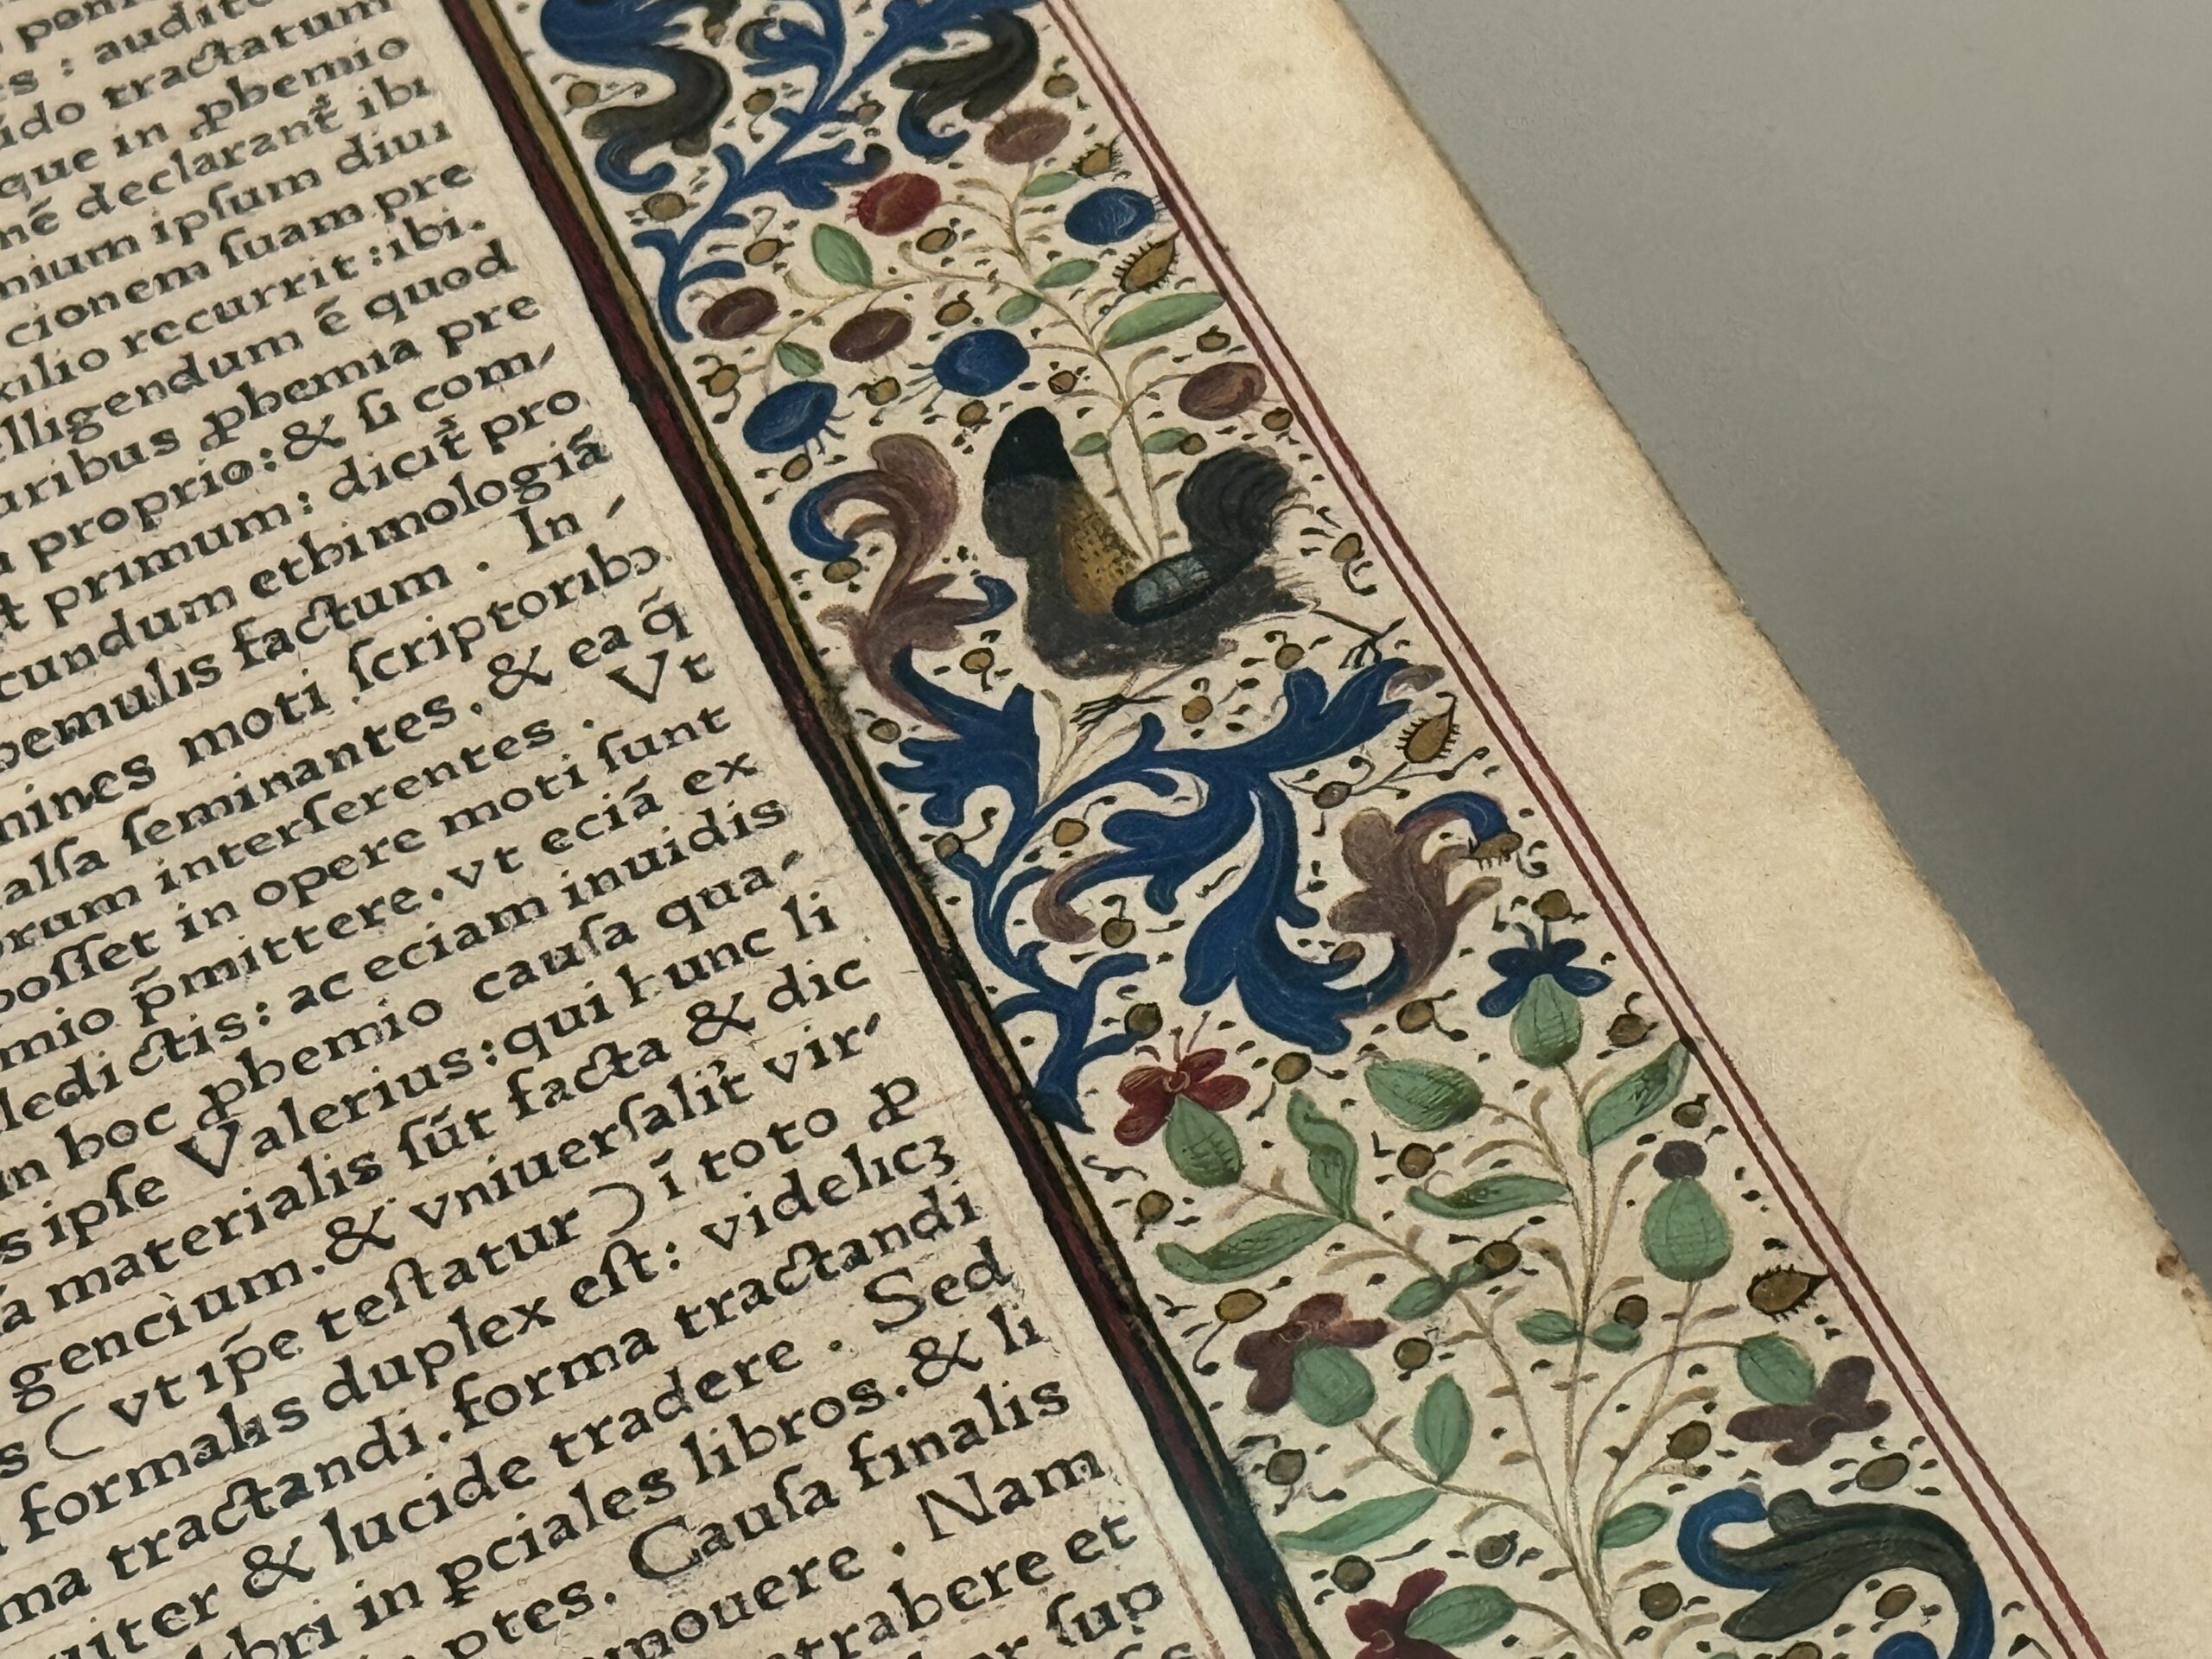 : audito
ido tractatum
que in ꝓhemio
declarant᷑ ibi
nium ipſum diui
cionem ſuam pre
xilio recurrit : ibi.
elligendum ē quod
uribus ꝓhemia pre
proprio : & ſi com⸗
primum : dicit᷑ pro
cundum ethimologiā
hemulis factum . In⸗
mines moti ſcriptoribꝫ
alſa ſeminantes, & ea q̄
orum interſerentes . Vt
poſſet in opere moti ſunt
mio p̄mittere. vt eciā ex
ledictis : ac eciam inuidis
in hoc ꝓhemio cauſa qua⸗
s ipſe Valerius : qui hunc li
a materialis ſūt facta & dic
gencium. & vniuerſalit᷑ vir⸗
s ( vt ip̄e teſtatur ) ī toto ꝓ
formalis duplex eſt : videlicꝫ
ma tractandi. forma tractandi
uiter & lucide tradere . Sed
libri in ꝑciales libros. & li
ptes. Cauſa finalis
mouere . Nam
trahere et
ſup